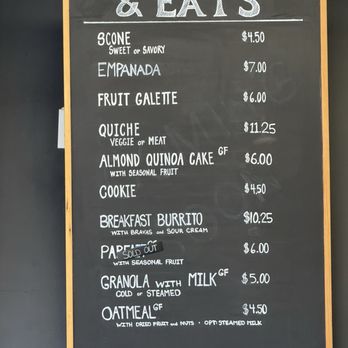 & EATS
SCONE $4.50
SWEET OR SAVORY
EMPANADA $7.00
FRUIT GALETTE $6.00
QUICHE $11.25
VEGGIE OR MEAT
ALMOND QUINOA CAKE GF $6.00
WITH SEASONAL FRUIT
COOKIE $4.50
BREAKFAST BURRITO $10.25
WITH BRAVAS AND SOUR CREAM
SOLD OUT $6.00
WITH SEASONAL FRUIT
GRANOLA WITH MILK GF $5.00
COLD OR STEAMED
OATMEAL GF $4.50
WITH DRIED FRUIT AND NUTS · OPT: STEAMED MILK